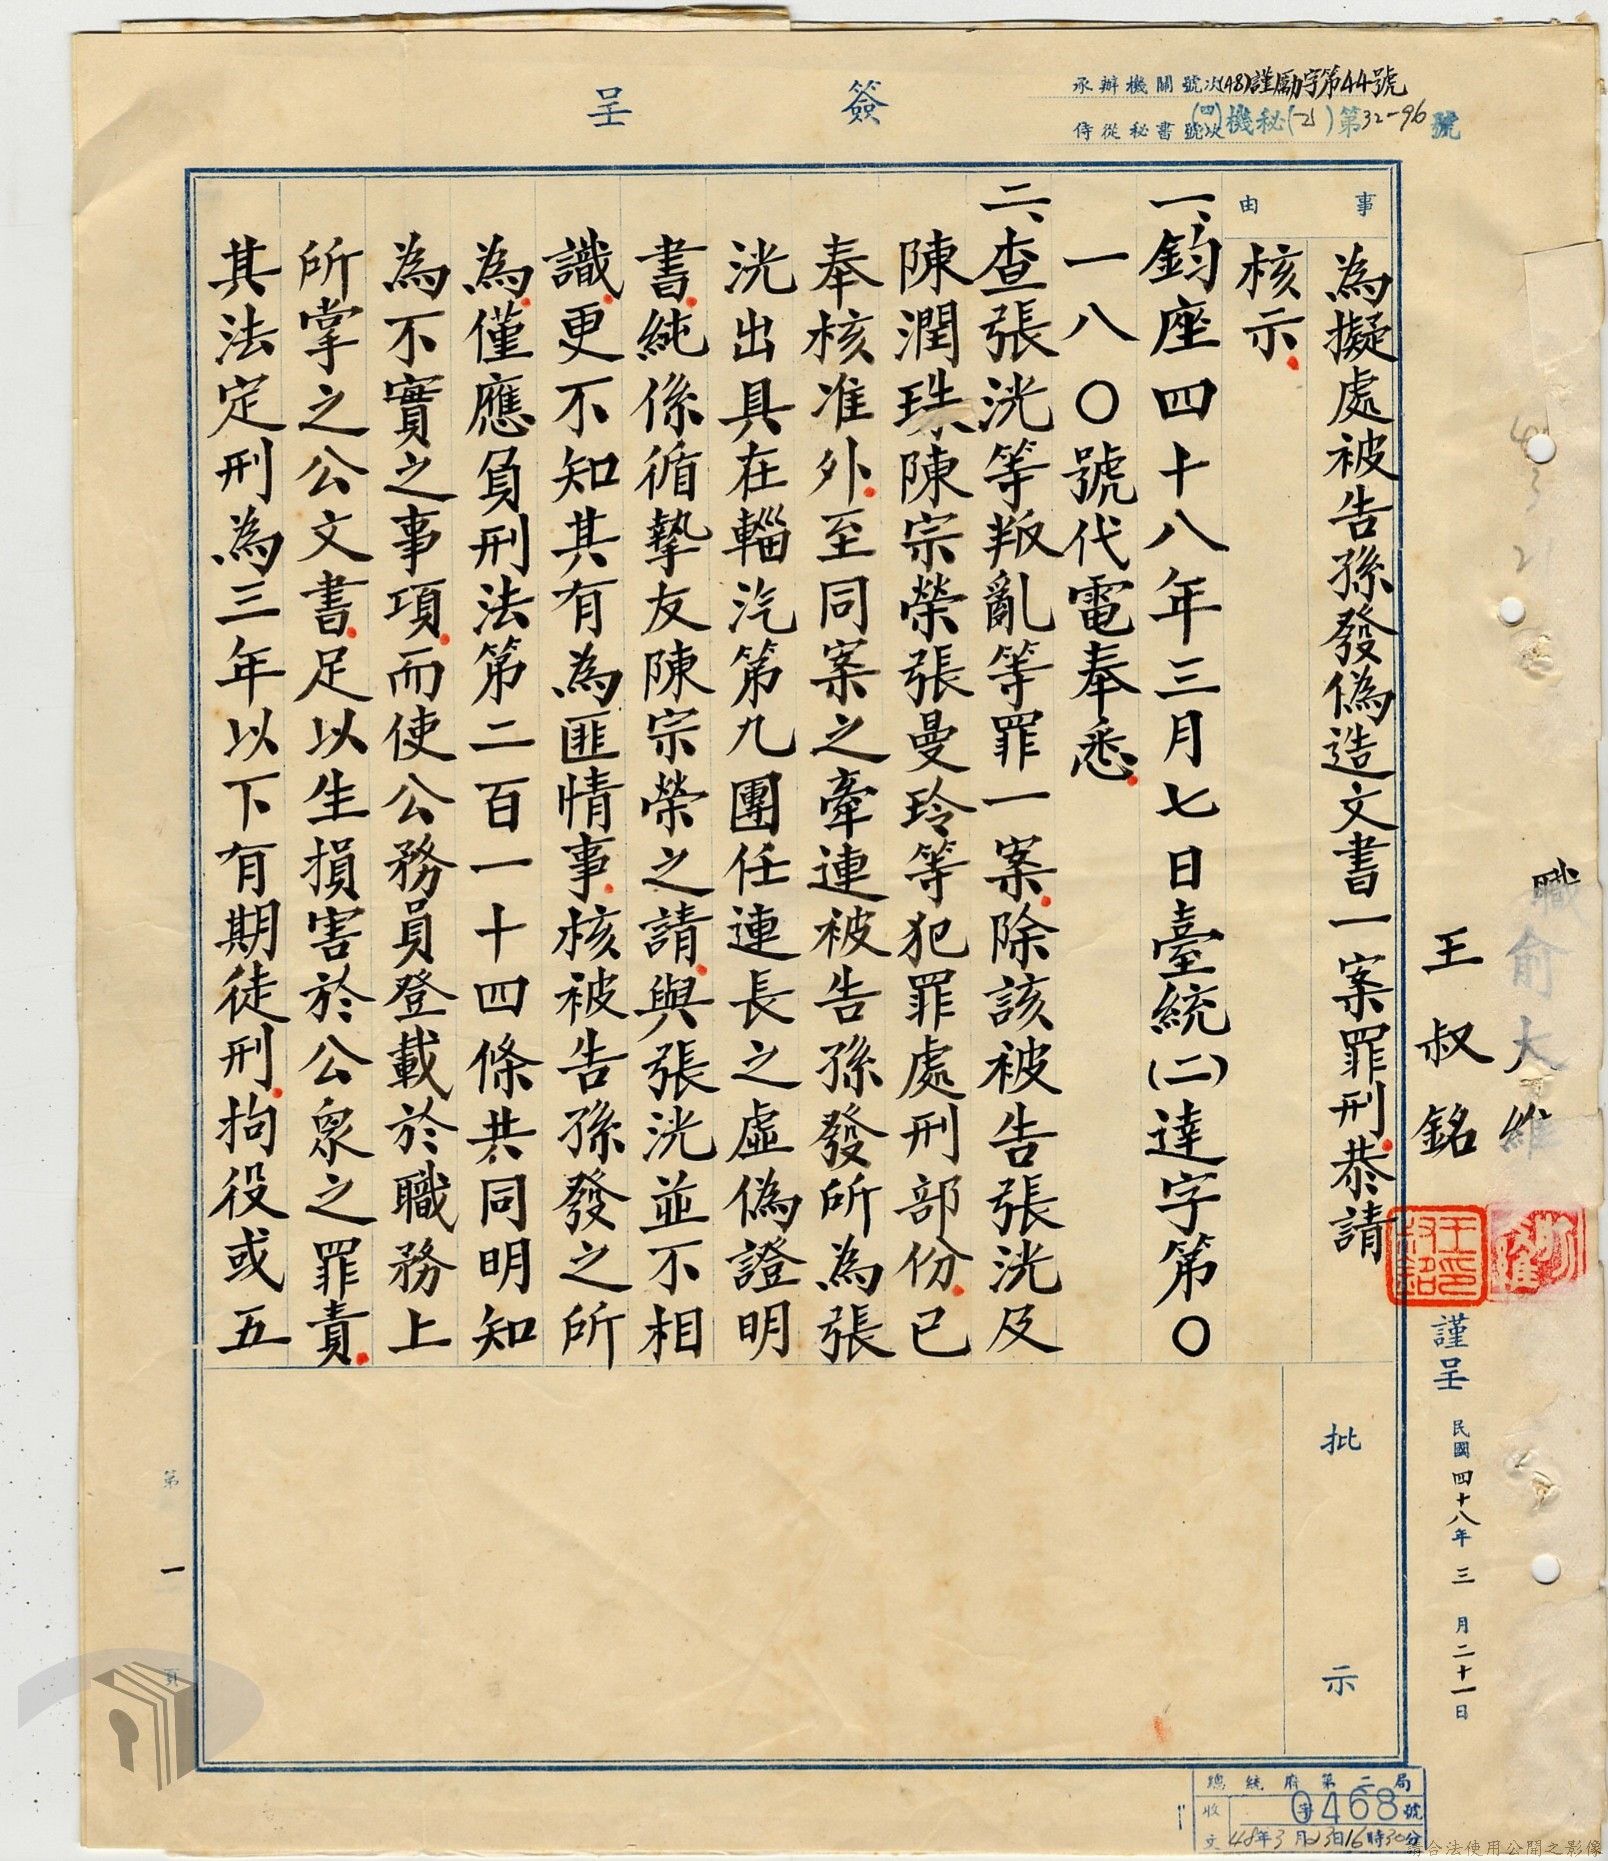 簽呈
承辦機關號次(48)謹勵字第44號
侍從秘書號次(四)機秘(乙)第32-96號
事由
為擬處被告孫發偽造文書一案罪刑恭請
核示
一、鈞座四十八年三月七日臺統(二)達字第〇
一八〇號代電奉悉
二、查張洸等叛亂等罪一案除該被告張洸及
陳潤珠陳宗榮張曼玲等犯罪處刑部份已
奉核准外至同案之牽連被告孫發所為張
洸出具在輜汽第九團任連長之虛偽證明
書純係循摯友陳宗榮之請與張洸並不相
識更不知其有為匪情事核被告孫發之所
為僅應負刑法第二百一十四條共同明知
為不實之事項而使公務員登載於職務上
所掌之公文書足以生損害於公眾之罪責
其法定刑為三年以下有期徒刑拘役或五
批示
職俞大維
王叔銘
王叔銘印
謹呈
民國四十八年三月二十一日
第一頁
總統府第二局
收文
字0468號
48年3月23日16時30分
請合法使用公開之影像